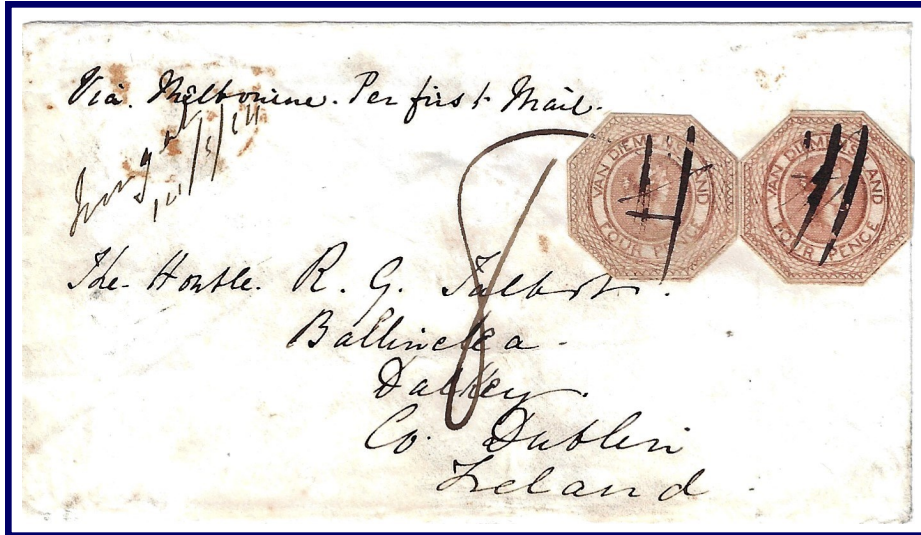 Via. Melbourne. Per first Mail.
VAN DIEMENS LAND
FOUR PENCE
VAN DIEMENS LAND
FOUR PENCE
8
The Honble. R. G. Talbot.
Ballinclea.
Dalkey.
Co. Dublin
Ireland.